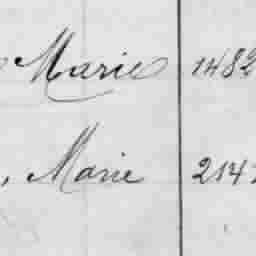 Marie 1482
, Marie 2141